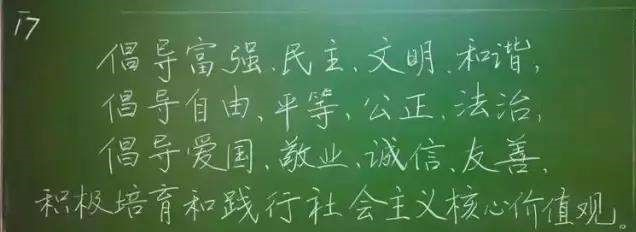 17
倡导富强、民主、文明、和谐,
倡导自由、平等、公正、法治,
倡导爱国、敬业、诚信、友善,
积极培育和践行社会主义核心价值观。